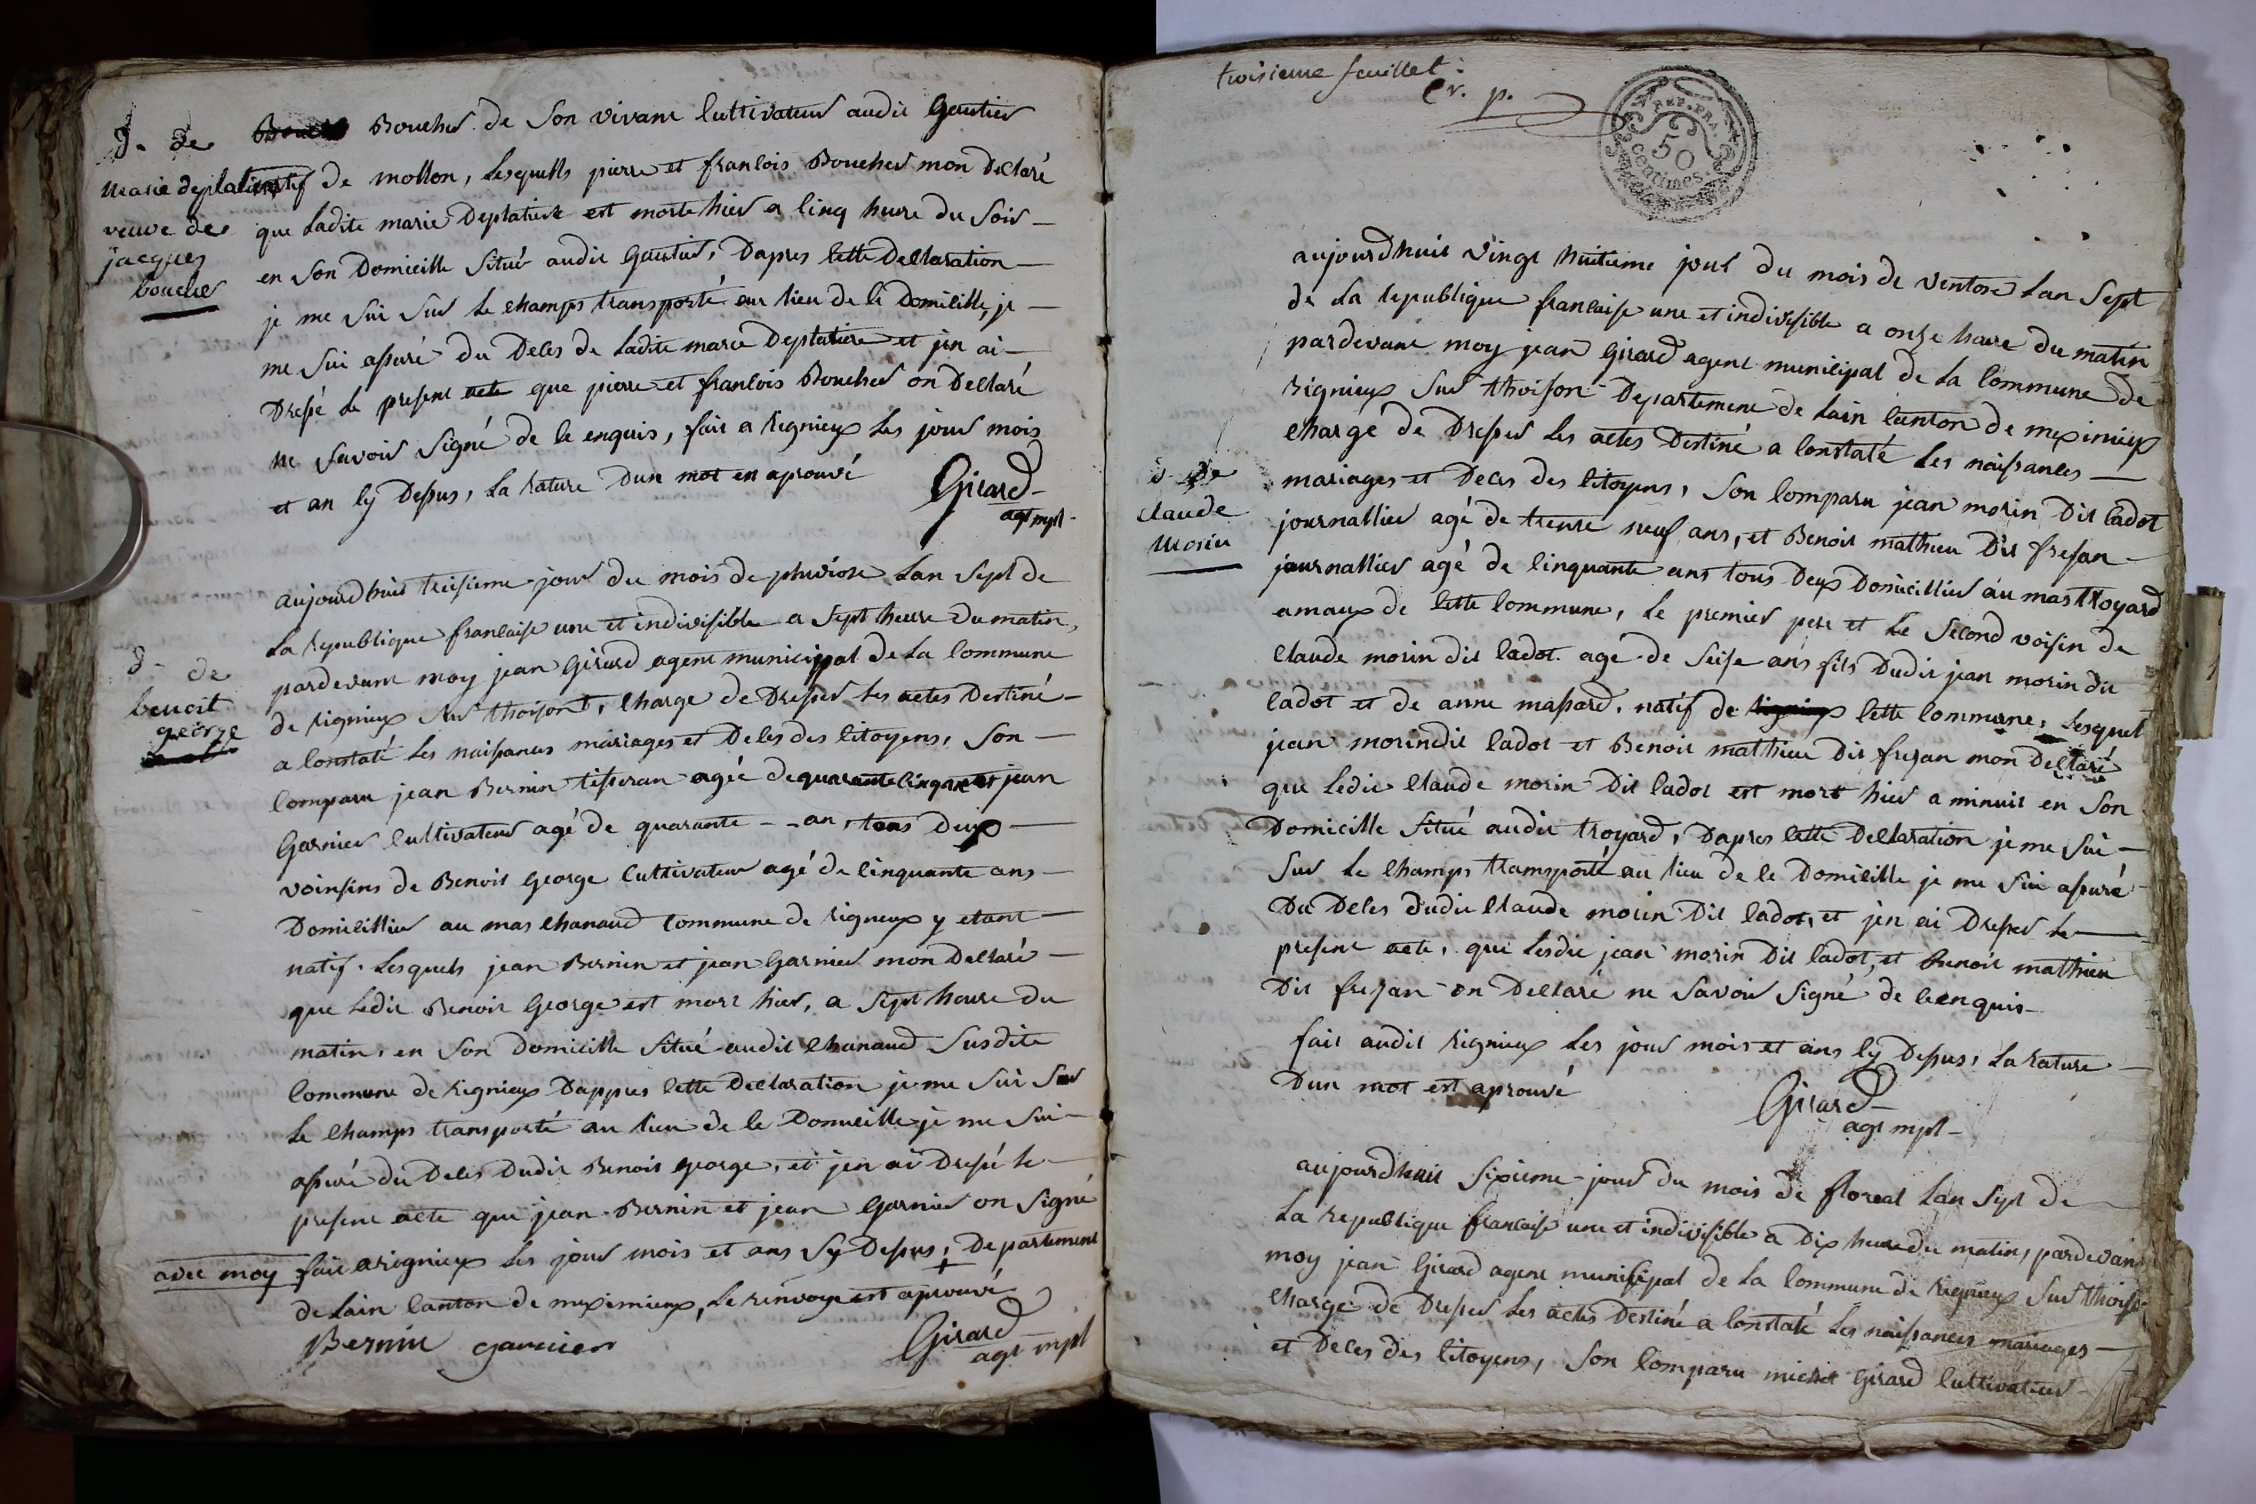 d. de
marie deplatiere
veuve de
jacques
boucher
Boucher de Son vivant Cultivateur audit Gautier
natif de mollon, Lesquells pierre et francois Boucher mon Déclaré
que Ladite marie Deplatiere est morte hier a cinq heure du Soir
en Son Domicille Situé audit Gautier, Dapres cette Declaration
je me Sui Sur Le champs transporté au lieu de ce Domicille, je
me Sui assuré du Deces de Ladite marie Deplatiere et jen ai
Dressé Le present acte que pierre et francois Boucher on Déclaré
ne Savoir Signé de ce enquis, fait a rignieux Les jour mois
et an cy Dessus, La rature Dun mot en aprouvé
Girard
agt mpl
d. de
benoit
george
aujourdhuit treisieme jour du mois de pluviose Lan Sept de
La republique francaise une et indivisible a Sept heure du matin,
pardevant moy jean Girard agent municipal de La Commune
de rignieux Sur thoisont, Chargé de Dresser Les actes Destiné
a Constaté Les naissances mariages et Deces des Citoyens, Son
Comparu jean Bernin tisseran agée de quarante cinq an et jean
Garnier Cultivateur agé de quarante an, tous deux
voinsins de Benoit George Cultivateur agé de cinquante ans
Domicillier au mas Chanaud Commune de rigneux y etant
natif. Lesquels jean Bernin et jean Garnier mon Declaré
que Ledit Benoit George est mort hier, a Sept heure du
matin, en Son Domicille Situé audit Chanaud Susdite
Commune de rignieux Dappres cette Declaration je me Sui Sur
Le Champs transporté au lieu de ce Domicille je me Sui
assuré du Deces Dudit Benoit George, et jen ai Dressé le
present acte que jean Bernin et jean Garnier on Signé
avec moy fait a rignieux Les jour mois et ans Sy Dessus, + Departement
de Lain Canton de meximieux, Le renvoye est aprouvé
Bernin garnier
Girard
agt mpl
troisieme feuillet.
er. p.
REP. FRA.
50
centimes.
aujourdhuit vingt huitieme jour du mois de ventose Lan Sept
de La republique francaise une et indivisible a onze heure du matin
pardevant moy jean Girard agent municipal de La Commune de
rignieux Sur thoison Departement de Lain Canton de meximieux
chargé de Dresser Les actes Destiné a Constaté Les naissances
d. de
claude
morin
mariages et Deces des Citoyens, Son Comparu jean morin Dit Cadot
journallier agé de trente neuf ans, et Benoit mathieu Dit fresan
journallier agé de Cinquante ans tous Deux Domicillier au mas troyard
amaux de Cette Commune, Le premier pere et Le Second voisin de
Claude morin dit Cadot agé de Seise ans fils Dudit jean morin dit
Cadot et de anne massard, natif de Cette Commune, Lesquel
jean morin dit Cadot et Benoit mathieu Dit fresan mon Declaré
que Ledit Claude morin Dit Cadot est mort hier a minuit en Son
Domicille Situé audit troyard, Dapres Cette Declaration je me Sui
Sur Le Champs transporté au lieu de ce Domicille je me Sui assuré
Du Deces Dudit Claude morin Dit Cadot, et jen ai Dresser Le
present acte, que Lesdit jean morin Dit Cadot, et Benoit mathieu
Dit fresan on Declaré ne Savoir Signé de ce enquis
fait audit rignieux Les jour mois et ans Cy Dessus, La rature
Dun mot est aprouvé
Girard
agt mpl
aujourdhuit Sixieme jour Du mois de floreal Lan Sept de
La republique francaise une et indivisible a Dix heure du matin, pardevant
moy jean Girard agent municipal de La Commune de rignieux Sur thoison
Chargé de Dresser Les actes Destiné a Constaté Les naissances mariages
et Deces des Citoyens, Son Comparu michel Girard Cultivateur